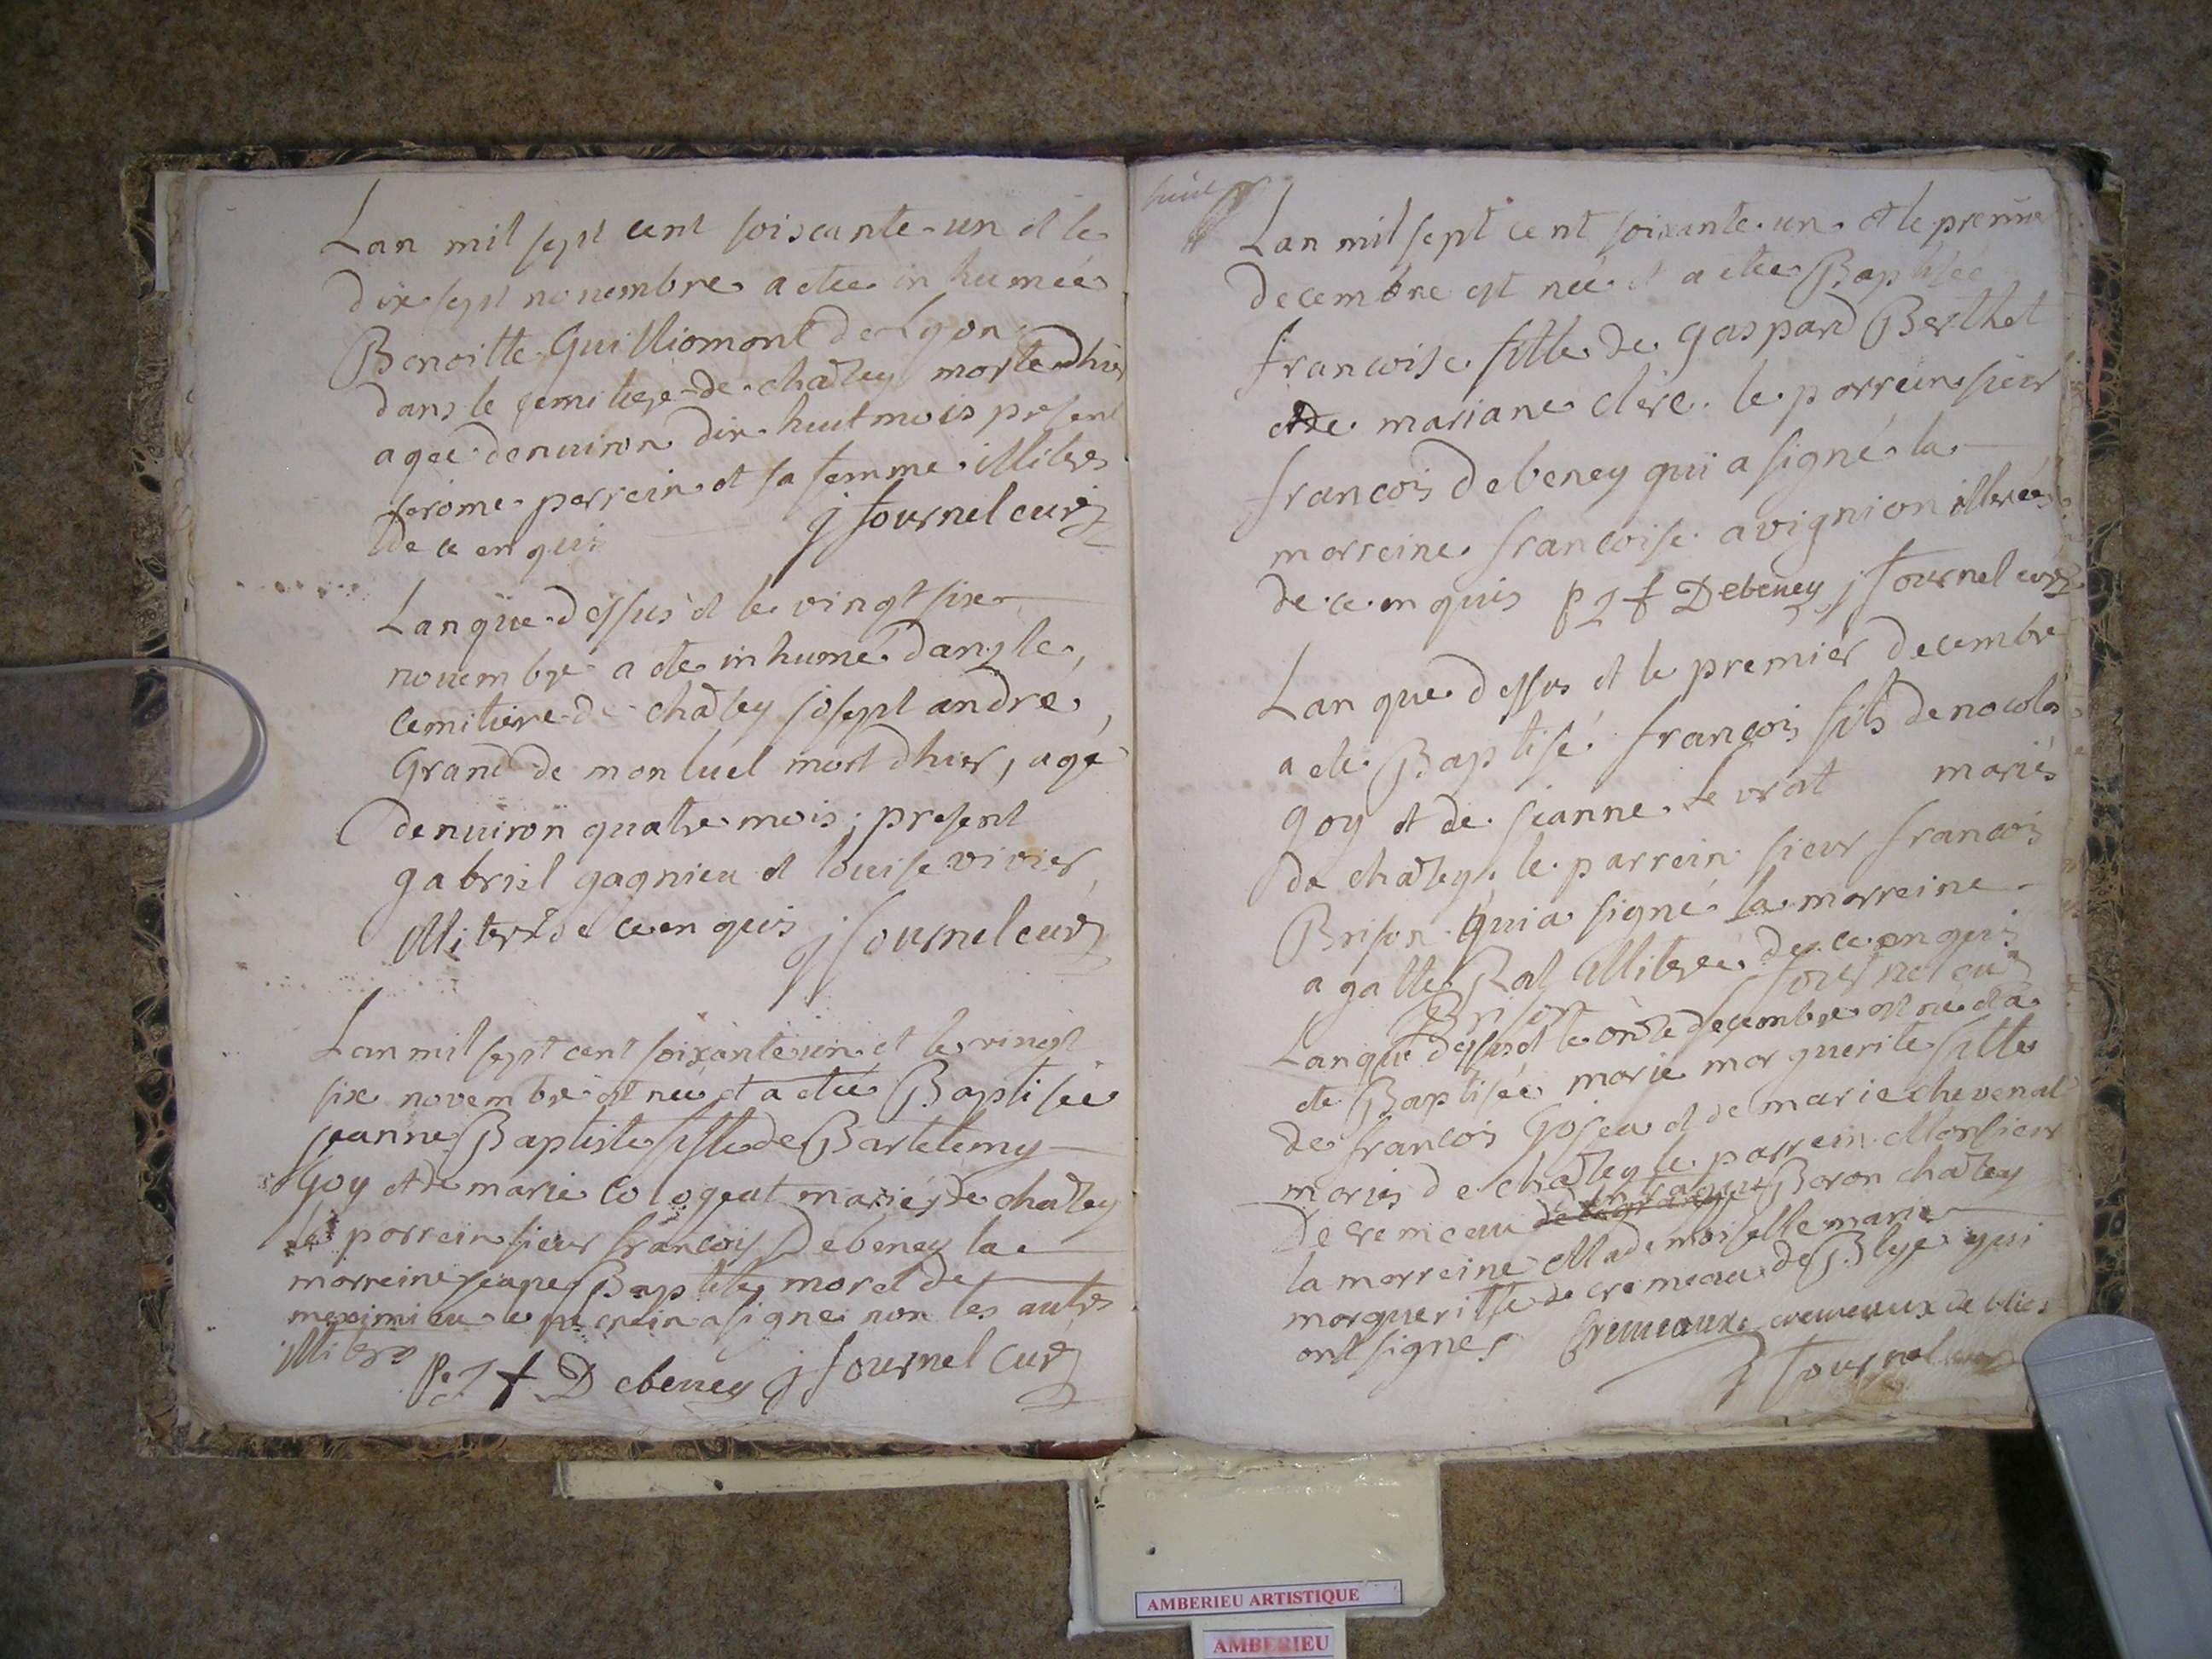 Lan mil sept cent soiscante-un et le
dix sept novembre a etee in humée
Benoitte Guilliomont de Lyon
dans le cemitiere de chatley morte dhier
agée denuiron dix huit mois present
jerome perrein et sa femme illiteres
de ce enquis j fournel curé
Lan que dessus et le vingt six
nouembre a ete inhumé dans le
cemitiere de chatley josept andré
Grand de monluel mort dhier, agé
denuiron quatre mois, present
gabriel gagnieu et louise vivier
illiterez de ce enquis j fournel curé
Lan mil sept cent soixante un et le vingt
six novembre est neé et a etee Baptisée
jeanne Baptiste fille de Bartelemy
Goy et de marie cologeat mariés de chatley
le porrein sieur francois Debeney la
morreine jeane Baptiste morel de
meximieu le porrein a signe non les autres
illiteres p. 2 f Debeney j fournel curé
Lan mil sept cent soixante un et le premier
decembre est neé et a etee Baptisée
francoise fille de gaspard Berthet
et de mariane clerc le porrein sieur
francois debeney qui a signé la
morreine francoise avignion illiterée
de ce enquis p 2 f Debeney j fournel curé
Lan que dessus et le premier decembre
a ete Baptisé françois fils de nocolas
goy et de jeanne le vrat mariés
de chatley le parrein sieur francois
Brison qui a signé la morreine
agatte Rat illiterée de ce enquis
Brison fournel curé
Lan que dessus et le onze decembre est née et a
ete Baptisée marie morguerite fille
de francois Gojeu et de marie chevenat
mariés de chatley le parrein Monsieur
De cremeau dentrague Baron chatley
la morreine Mademoiselle marie
morguerite de cremeau de Blye qui
ont signes Cremeaux cremeaux de blies
j fournel curé
AMBERIEU ARTISTIQUE
AMBERIEU